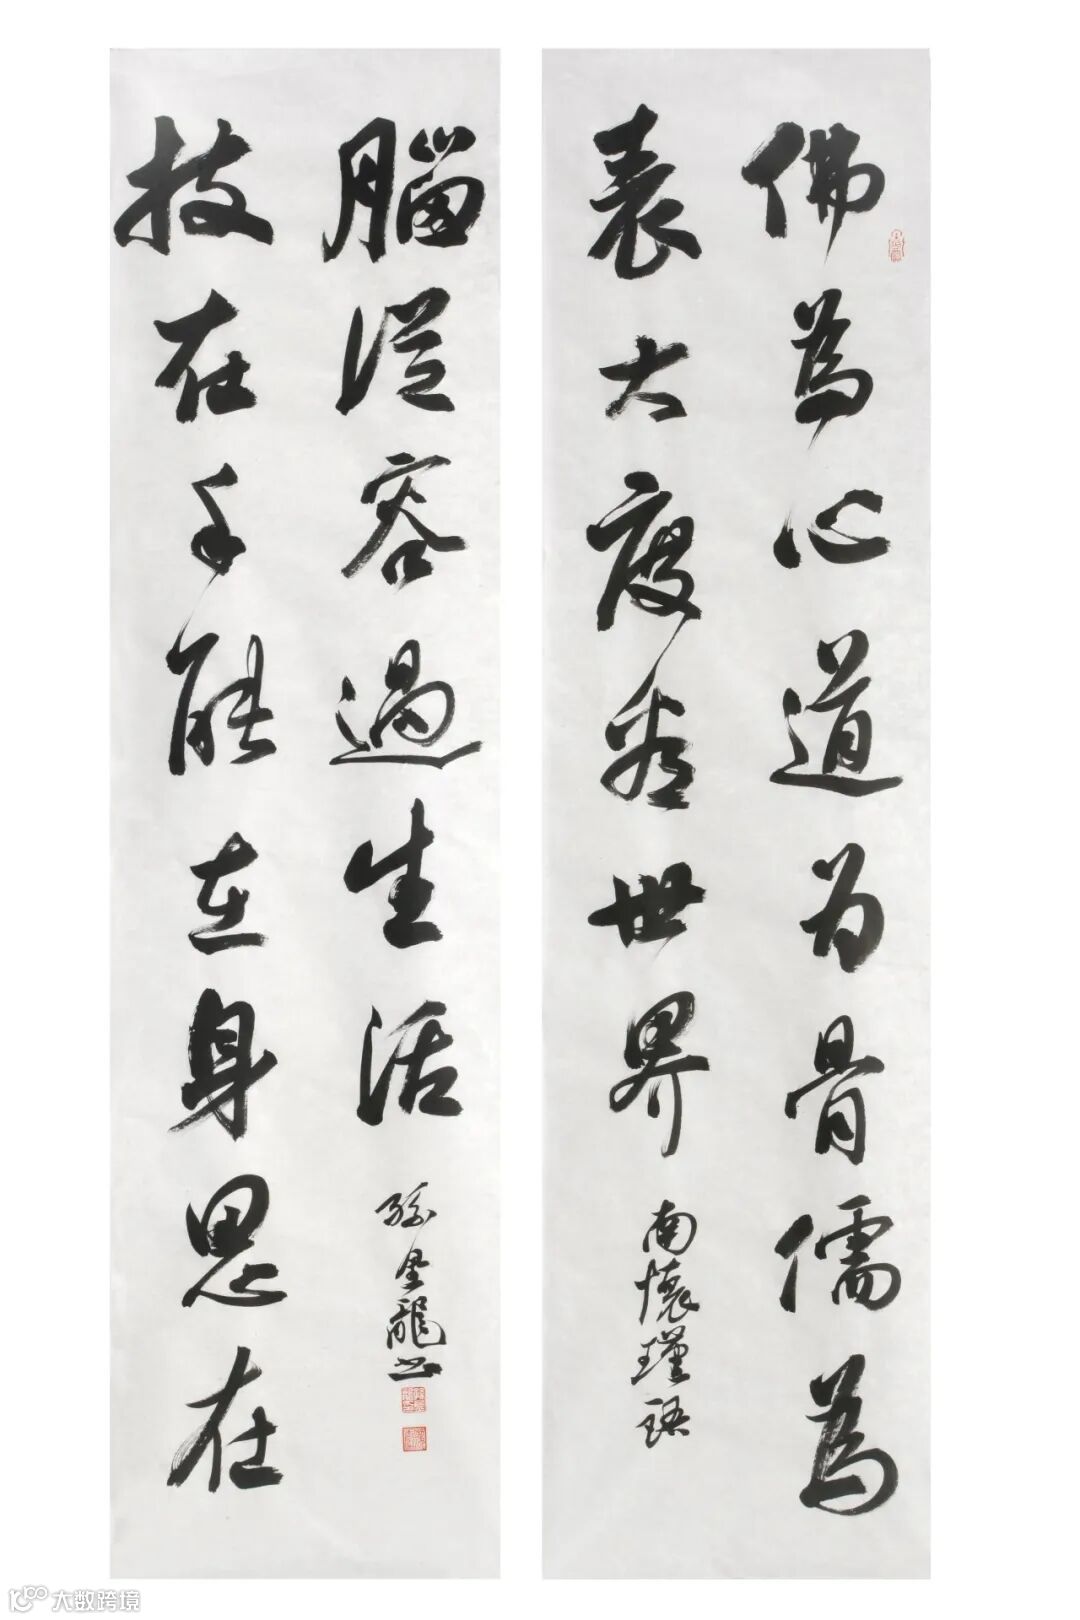 佛為心道为骨儒為
表大度看世界
南懷瑾語
技在手能在身思在
腦從容過生活
孫金龍书
大数跨境